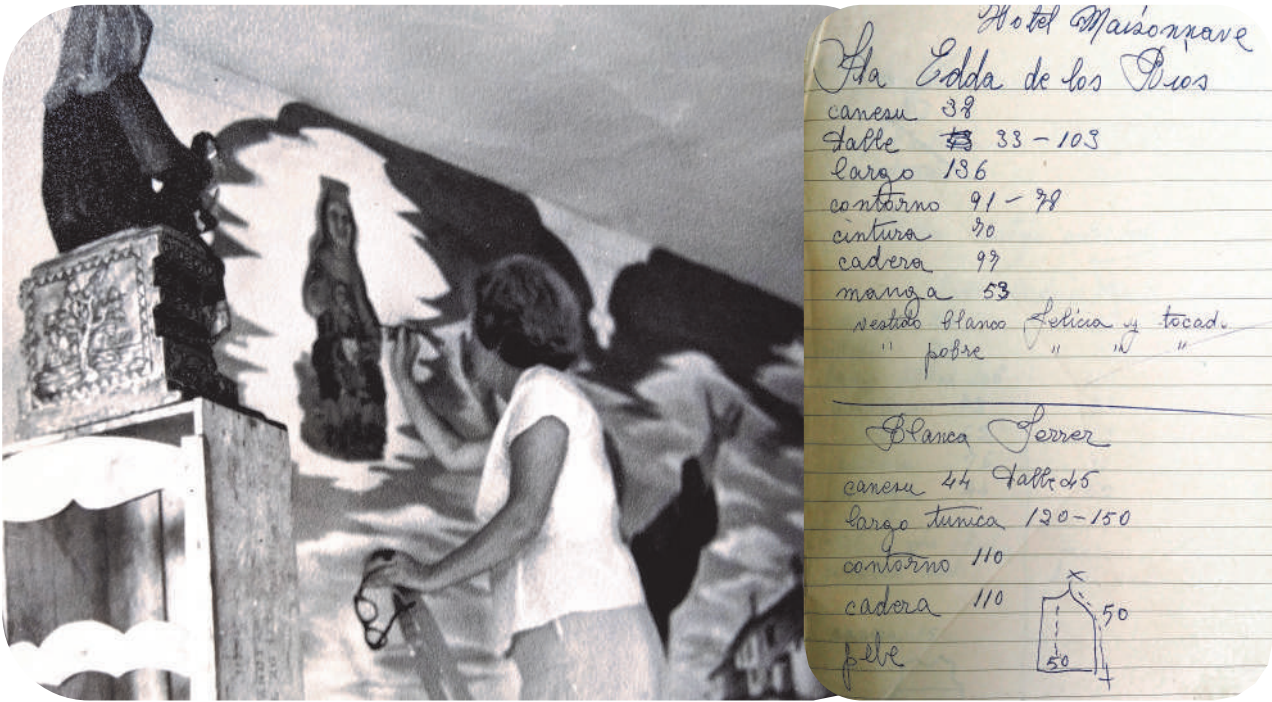 Hotel Maisonnave
Sta Edda de los Rios
canesu 38
talle 33 - 103
largo 136
contorno 91 - 78
cintura 70
cadera 97
manga 53
vestido blanco Felicia y tocad.
" pobre " " "
Blanca Ferrer
canesu 44 talle 45
largo tunica 120 - 150
contorno 110
cadera 110
x
50
50
plbe